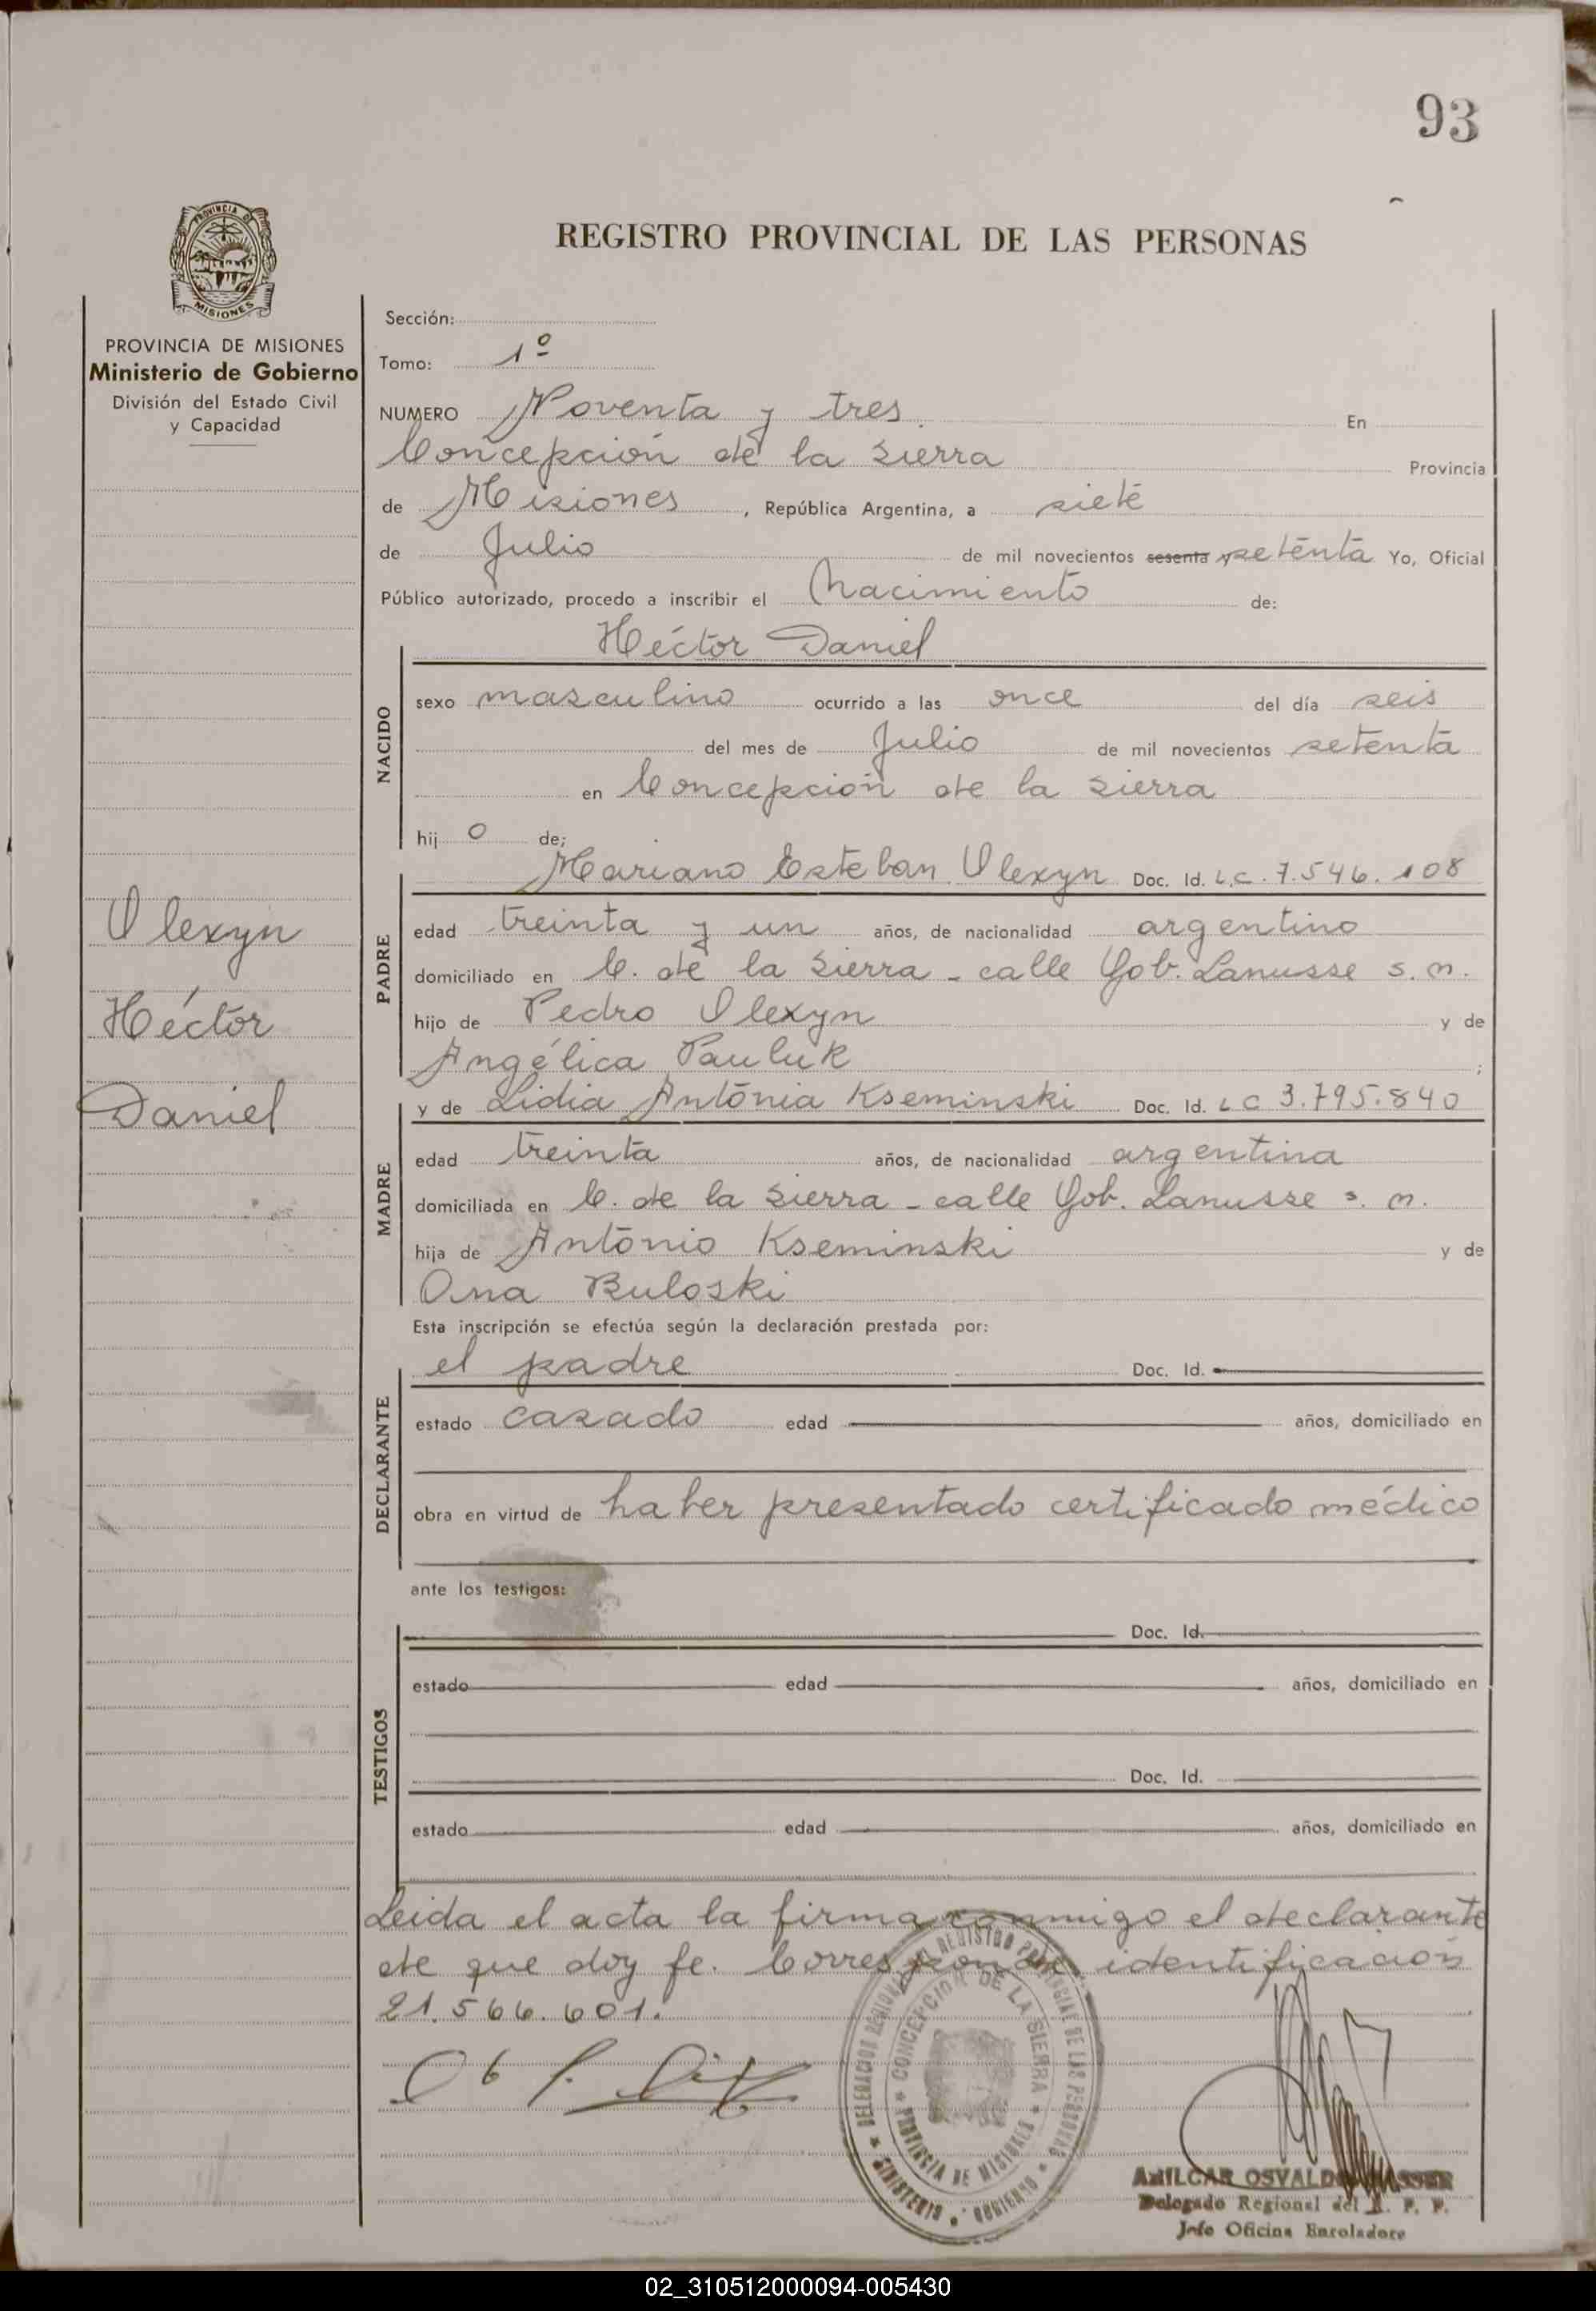 93
REGISTRO PROVINCIAL DE LAS PERSONAS
PROVINCIA DE
MISIONES
PROVINCIA DE MISIONES
Ministerio de Gobierno
División del Estado Civil
y Capacidad
Olexyn
Héctor
Daniel
Sección:
Tomo: 1º
NUMERO Noventa y tres. En
Concepción de la Sierra Provincia
de Misiones, República Argentina, a siete
de Julio de mil novecientos sesenta y setenta Yo, Oficial
Público autorizado, procedo a inscribir el Nacimiento de:
Héctor Daniel
NACIDO
sexo masculino ocurrido a las once del día seis
del mes de Julio de mil novecientos setenta
en Concepción de la Sierra
hij o de;
PADRE
Mariano Esteban Olexyn Doc. Id. L.C. 7.546.108
edad treinta y un años, de nacionalidad argentino
domiciliado en C. de la Sierra - calle Gob. Lanusse s. n.
hijo de Pedro Olexyn y de
Angélica Pauluk ;
MADRE
y de Lidia Antonia Kseminski Doc. Id. L C 3.795.840
edad treinta años, de nacionalidad argentina
domiciliada en C. de la Sierra - calle Gob. Lanusse s. n.
hija de Antonio Kseminski y de
Ana Buloski
Esta inscripción se efectúa según la declaración prestada por:
DECLARANTE
el padre Doc. Id.
estado casado edad años, domiciliado en
obra en virtud de haber presentado certificado médico
ante los testigos:
TESTIGOS
Doc. Id.
estado edad años, domiciliado en
Doc. Id.
estado edad años, domiciliado en
Leida el acta la firma conmigo el declarante
de que doy fe. Corresponde identificación
21.566.601.
DELEGACION REGIONAL DEL REGISTRO PROVINCIAL DE LAS PERSONAS
CONCEPCION DE LA SIERRA
PROVINCIA DE MISIONES
MINISTERIO GOBIERNO
AMILCAR OSVALDO
Delegado Regional del R. P. P.
Jefe Oficina Enroladora
02_310512000094-005430